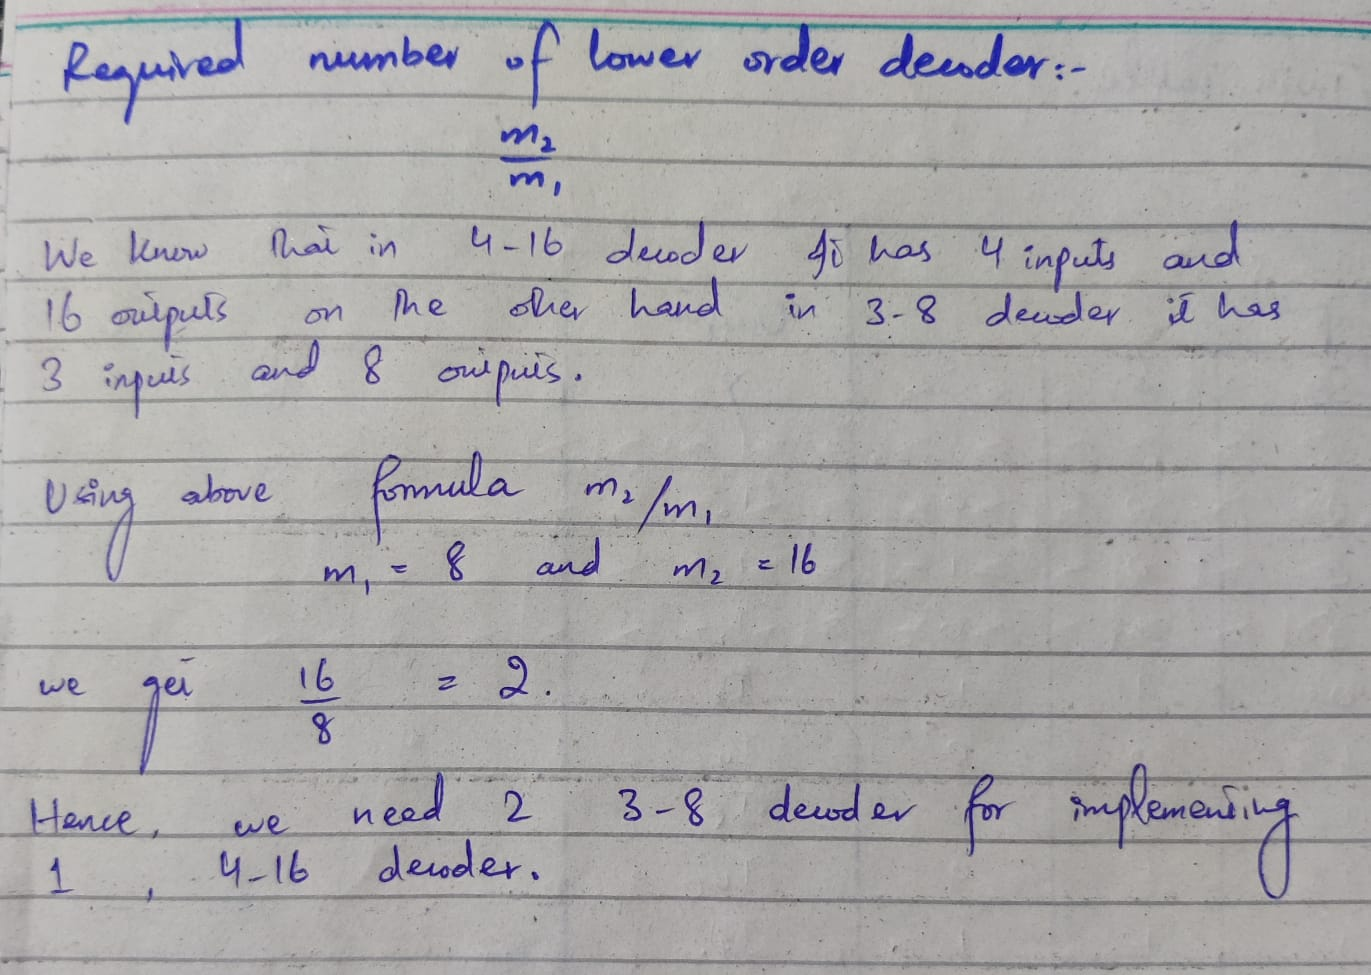 Required number of lower order decoder:-
m₂
m₁
We know that in 4-16 decoder it has 4 inputs and
16 outputs on the other hand in 3-8 decoder it has
3 inputs and 8 outputs.
Using above formula m₂/m₁
m₁ = 8 and m₂ = 16
we get 16/8 = 2.
Hence, we need 2 3-8 decoder for implementing
1, 4-16 decoder.